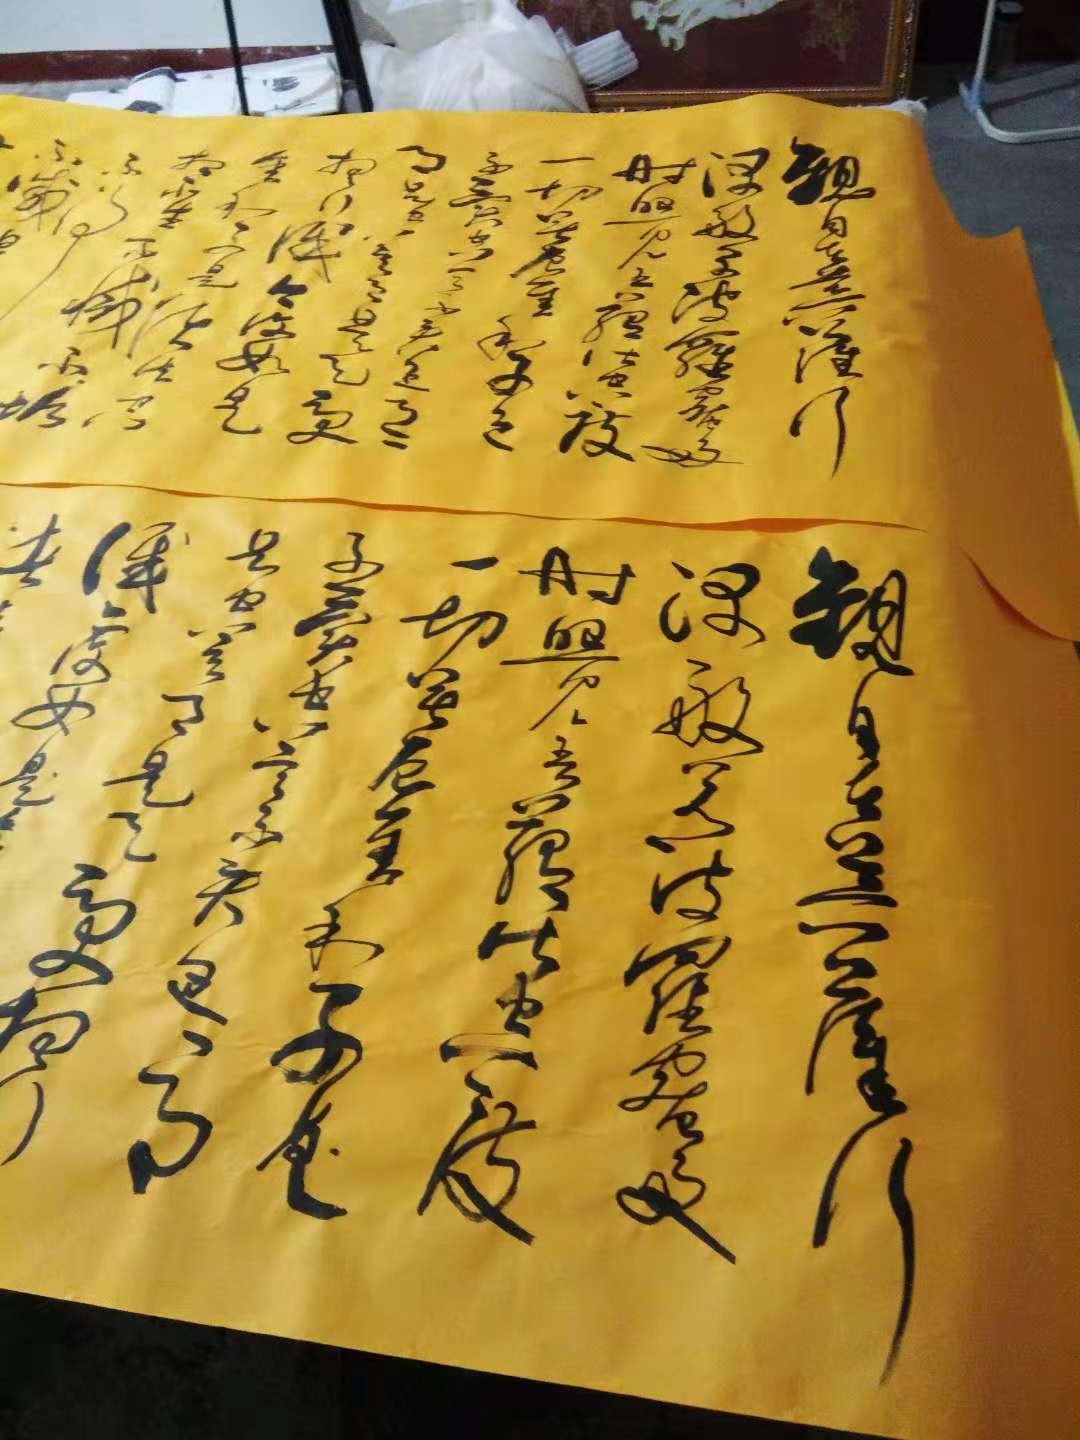 觀自在菩薩行
深般若波羅蜜多
時照見五蘊皆空度
一切苦厄舍利子色
不異空空不異色色
即是空空即是色受
想行識亦復如是
舍利子是諸法空
相不生不滅
不增
不減是
觀自在菩薩行
深般若波羅蜜多
時照見五蘊皆空度
一切苦厄舍利子色
不異空空不異色色即
是空空即是色受想行
識亦復如是